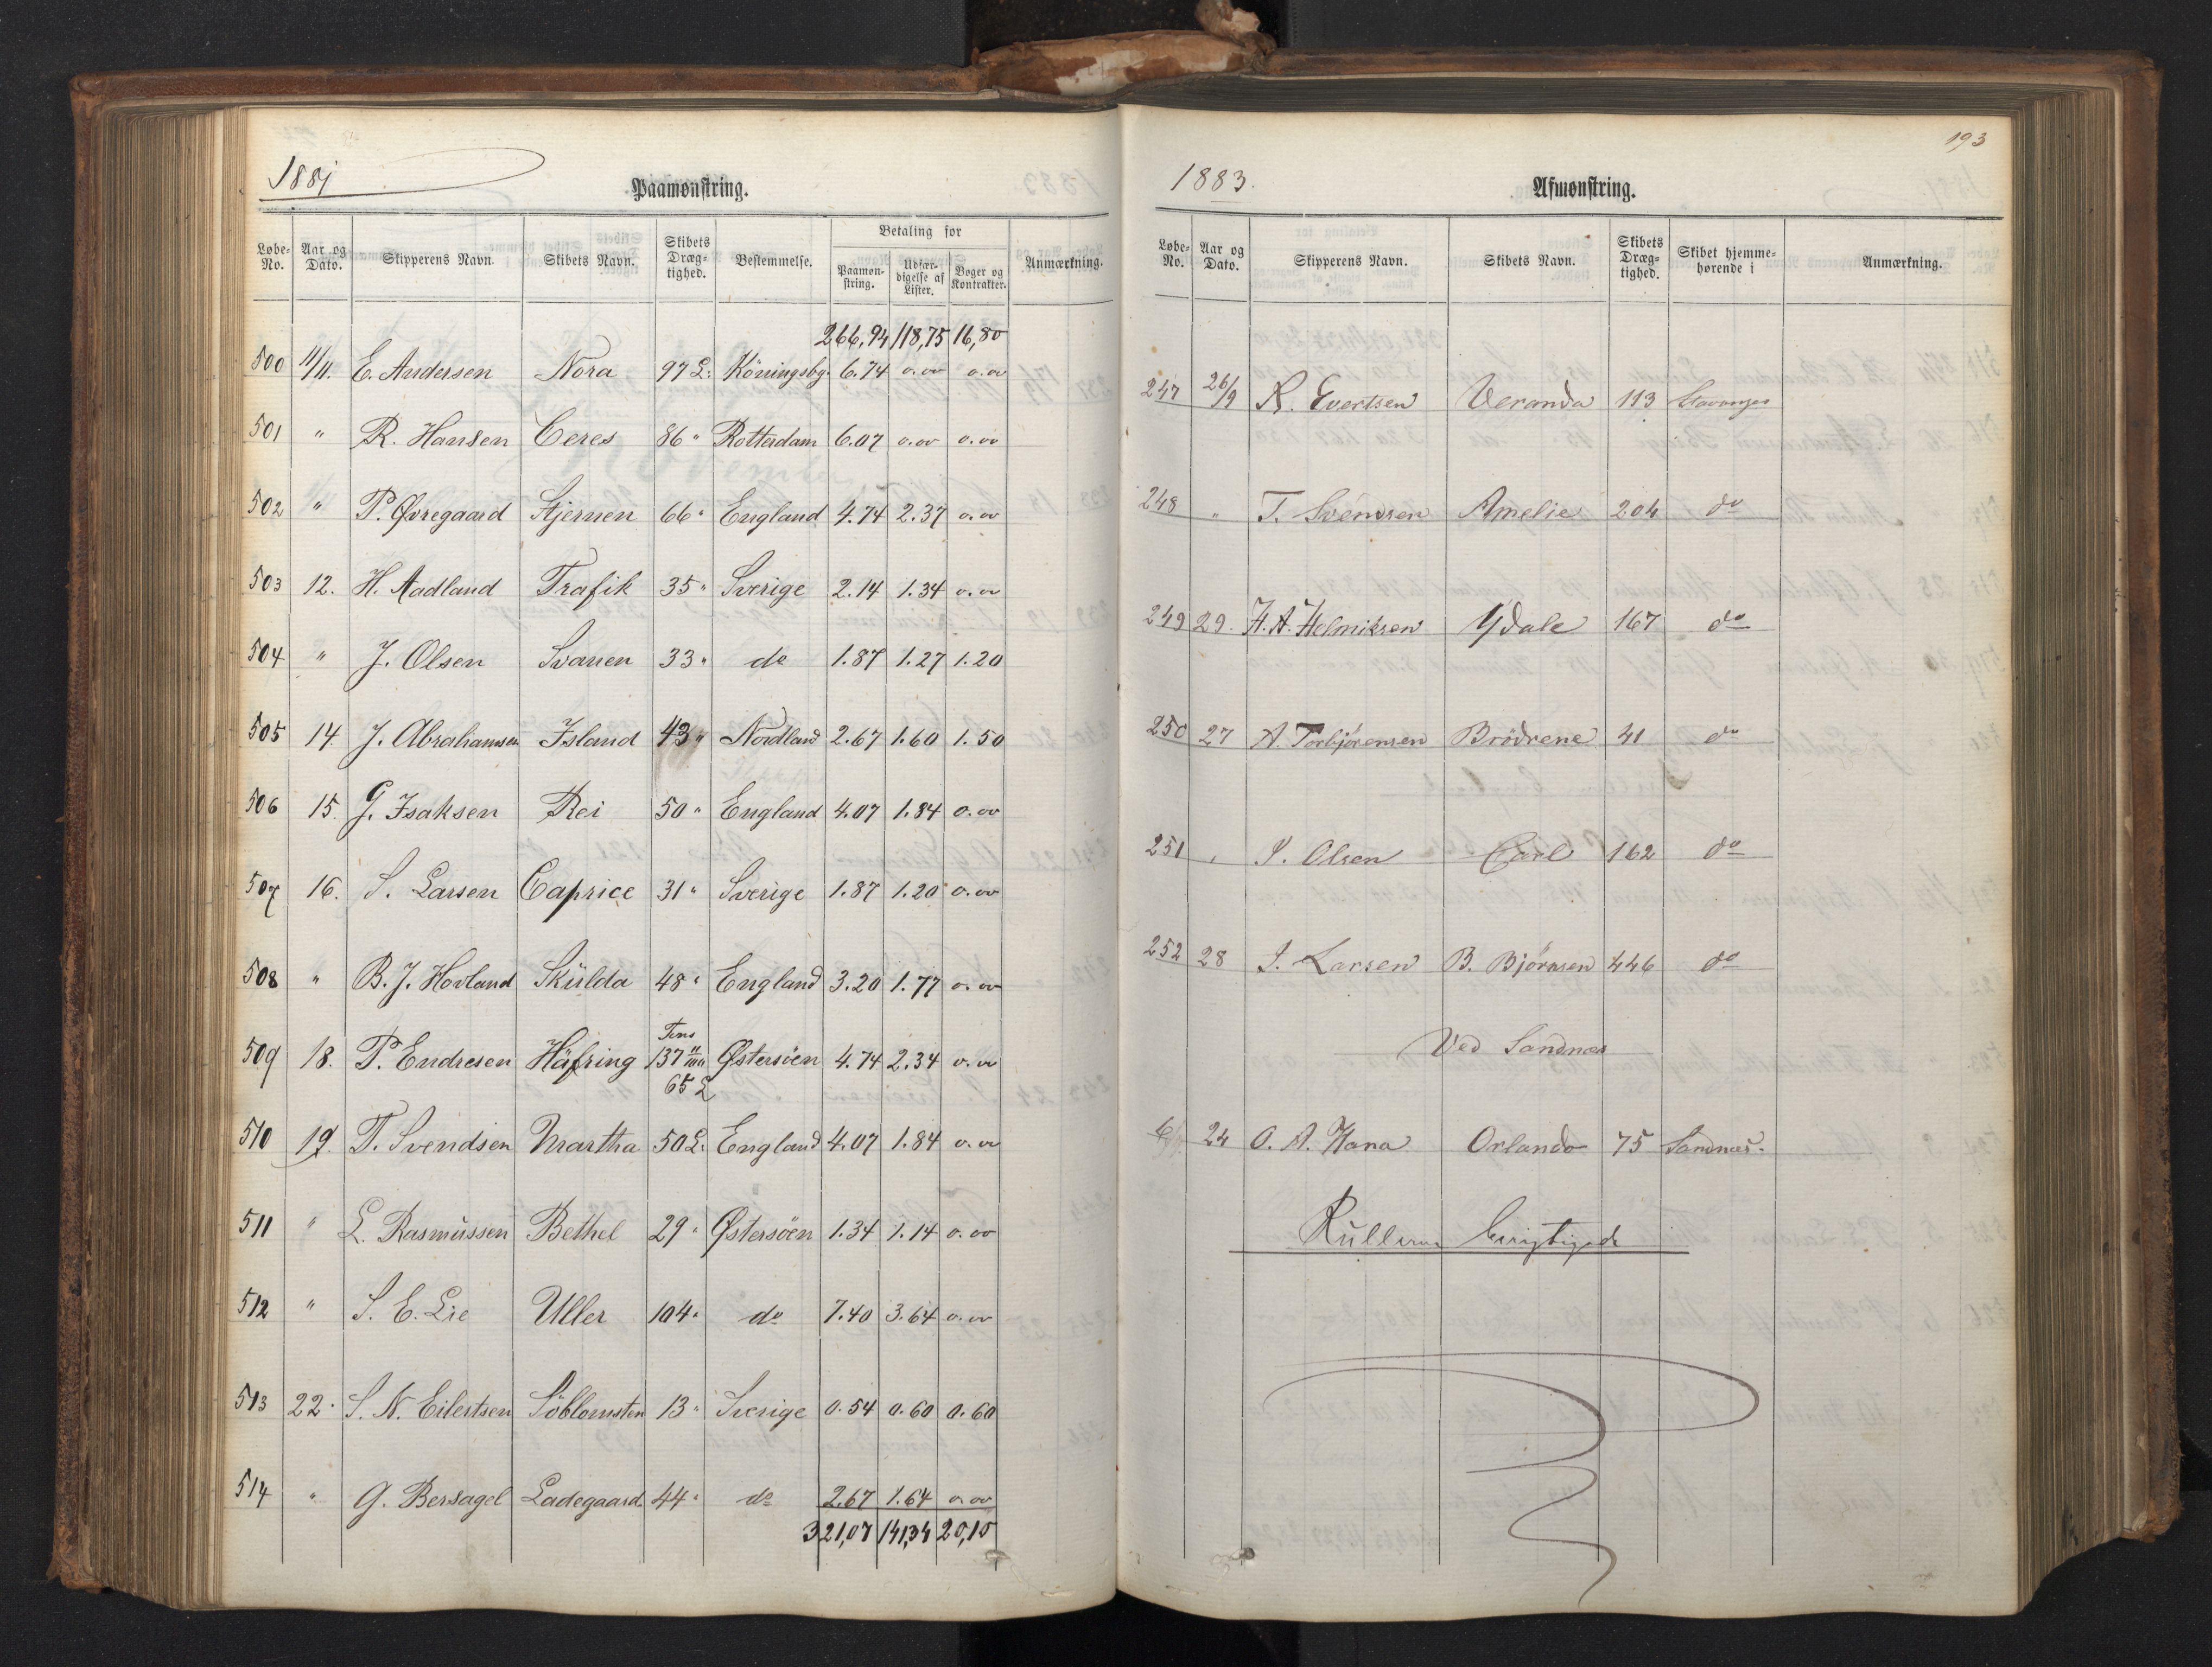 1881
Paamønstring.
Løbe-No. Aar og Dato. Skipperens Navn. Skibets Navn. Skibets Dræg-tighed. Bestemmelse. Betaling for Paamøn-string. Udfær-digelse af Lister. Bøger og Kontrakter. Anmærkning.
266,94 118,75 16,80
500 11/11. E. Andersen Nora 97 L: Köningsbg. 6.74 0.00 0.00
501 " R. Hansen Ceres 86 " Rotterdam 6.07 0.00 0.00
502 " P. Øvregaard Stjernen 66 " England 4.74 2.37 0.00
503 12. H. Aadland Trafik 35 " Sverige 2.14 1.34 0.00
504 " J. Olsen Svanen 33 " do 1.87 1.27 1.20
505 14. J. Abrahamsen Island 43 " Nordland 2.67 1.60 1.50
506 15. G. Isaksen Rei 50 " England 4.07 1.84 0.00
507 16. S. Larsen Caprice 31 " Sverige 1.87 1.20 0.00
508 " B. J. Hovland Skülda 48 " England 3.20 1.77 0.00
Tons
509 18. P. Endresen Häfring 137 Østersöen 4.74 2.34 0.00
65 L
510 19. T. Svendsen Martha 50 L: England 4.07 1.84 0.00
511 " L. Rasmüssen Bethel 29 " Østersöen 1.34 1.14 0.00
512 " S. E. Lie Uller 104 " do 7.40 3.64 0.00
513 22. S. N. Eilertsen Söblomsten 13 " Sverige 0.54 0.60 0.60
514 " G. Bersagel Ladegaard 44 " do 2.67 1.64 0.00
321,07 141,34 20,10
193
1883.
Afmønstring.
Løbe-No. Aar og Dato. Skipperens Navn. Skibets Navn. Skibets Dræg-tighed. Skibet hjemme-hørende i Anmærkning.
247 26/9 R. Evertsen Veranda 113 Stavanger
248 " T. Svendsen Amelie 204 do
249 29. H. A. Helmiksen Ydale 167 do
250 27 A. Torbjörensen Brödrene 41 do
251 " S. Olsen Carl 162 do
252 28 J. Larsen B. Björnsen 446 do
Ved Sandnes
24 O. A. Hana Orlando 75 Sandnæs.
Rüllerne